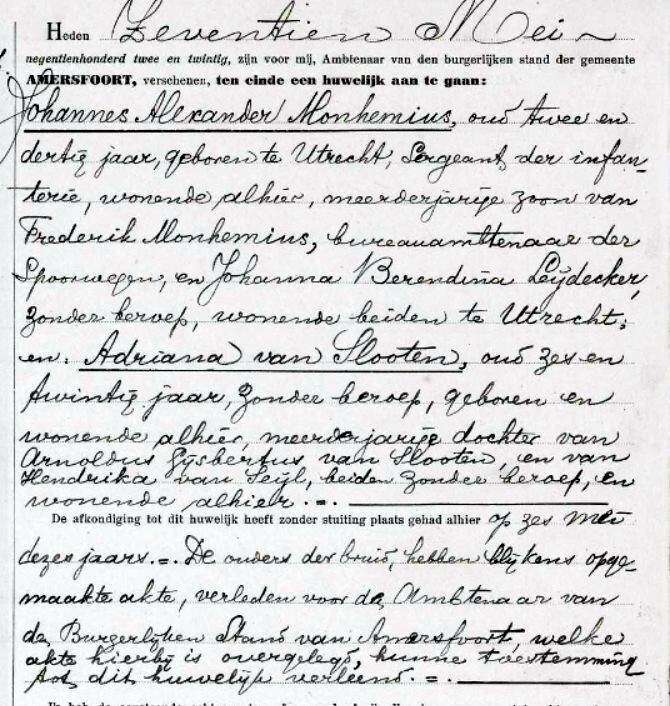 Heden Zeventien Mei
negentienhonderd twee en twintig, zijn voor mij, Ambtenaar van den burgerlijken stand der gemeente
AMERSFOORT, verschenen, ten einde een huwelijk aan te gaan:
Johannes Alexander Monhemius, oud twee en
dertig jaar, geboren te Utrecht, Sergeant der infan-
terie, wonende alhier, meerderjarige zoon van
Frederik Monhemius, bureauambtenaar der
Spoorwegen, en Johanna Berendina Leijdecker,
zonder beroep, wonende beiden te Utrecht;
en. Adriana van Slooten, oud zes en
twintig jaar, zonder beroep, geboren en
wonende alhier, meerderjarige dochter van
Arnoldus Gijsbertus van Slooten, en van
Hendrika van Seijl, beiden zonder beroep, en
wonende alhier. =.
De afkondiging tot dit huwelijk heeft zonder stuiting plaats gehad alhier op zes Mei
dezes jaars. =. De ouders der bruid, hebben blijkens opge-
maakte akte, verleden voor de Ambtenaar van
de Burgerlijken Stand van Amersfoort, welke
akte hierbij is overgelegd, hunne toestemming
tot dit huwelijk verleend. =.